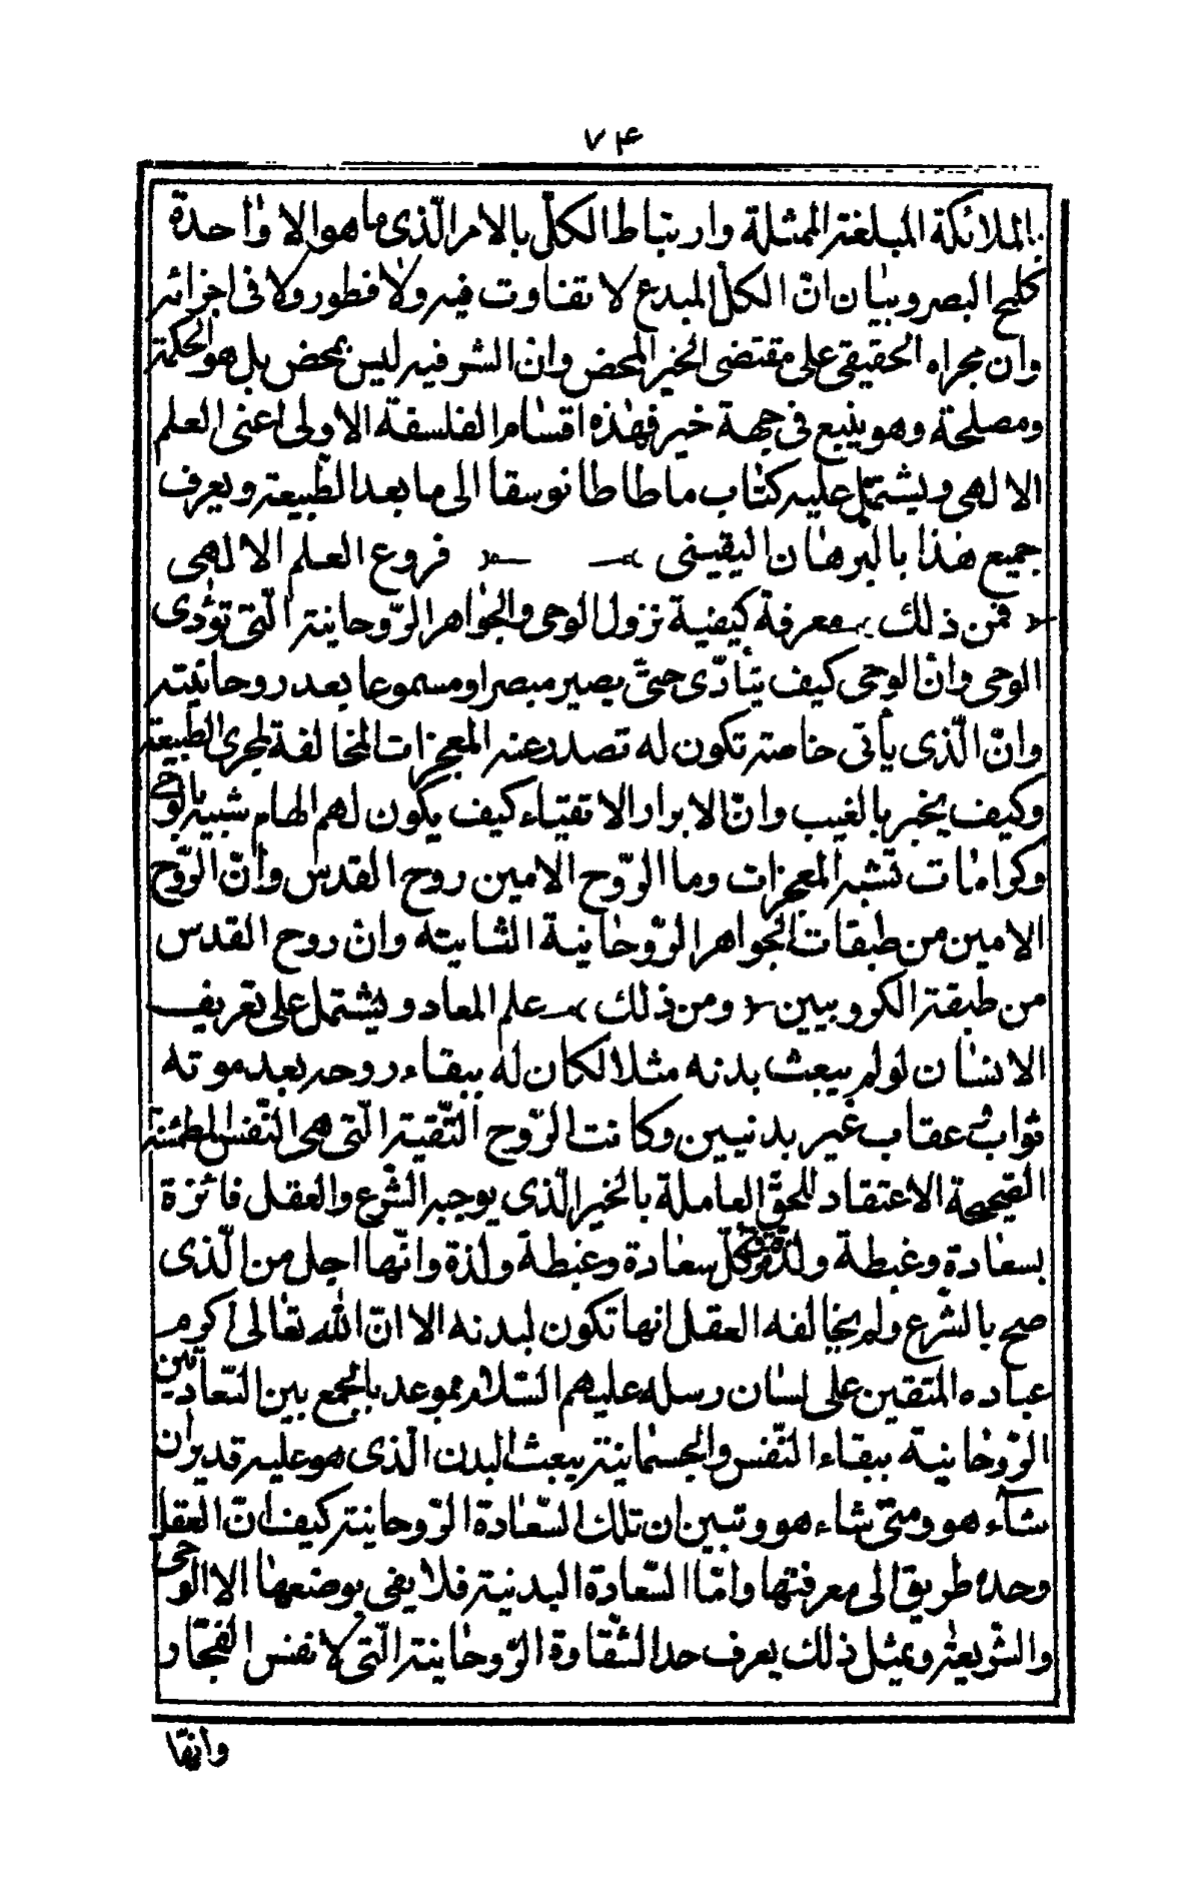 ٧۴
الملائكة المبلغة الممثلة وارتباط الكلّ بالامر الّذى ما هو الا واحدة
كلمح البصر وبيان انّ الكلّ المبدع لا تفاوت فيه ولا فطور ولا فى اجزائه
وان مجراه الحقيقى على مقتضى الخير المحض وانّ الشر فيه ليس بمحض بل هو لحكمة
ومصلحة وهو ينبع فى جهة خير فهذه اقسام الفلسفة الاولى اعنى العلم
الالهى ويشتمل عليه كتاب ماطاطانوسقا اى ما بعد الطّبيعة ويعرف
جميع هذا بالبرهان اليقينى فروع العلم الالهى
فمن ذلك معرفة كيفية نزول الوحى والجواهر الرّوحانية الّتى تؤدى
الوحى وانّ الوحى كيف يتأدّى حتّى يصير مبصرا ومسموعا بعد روحانيته
وانّ الّذى يأتى خاصة تكون له تصدر عنه المعجزات المخالفة لمجرى الطبيعة
وكيف يخبر بالغيب وانّ الابرار الاتقياء كيف يكون لهم الهام شبيه بالوحى
وكرامات تشبه المعجزات وما الرّوح الامين روح القدس وانّ الرّوح
الامين من طبقات الجواهر الرّوحانية الثابتة وان روح القدس
من طبقة الكروبيين ومن ذلك علم المعاد ويشتمل على تعريف
الانسان لو لم يبعث بدنه مثلا لكان له ببقاء روحه بعد موته
ثواب عقاب غير بدنيين وكانت الرّوح التّقية الّتى هى النّفس المطمئنة
الصّحيحة الاعتقاد للحقّ العاملة بالخير الّذى يوجبه الشّرع والعقل فائزة
بسعادة وغبطة ولذة فوق كلّ سعادة وغبطة ولذة وانّها اجل من الّذى
صح بالشّرع ولم يخالفه العقل انها تكون لبدنه الا انّ الله تعالى اكرم
عباده المتقين على لسان رسله عليهم السّلام بموعد بالجمع بين السّعادتين
الرّوحانية ببقاء النّفس والجسمانية ببعث البدن الّذى هو عليه قدير ان
شآء هو ومتى شاء هو وتبين ان تلك السّعادة الرّوحانية كيف انّ العقل
وحده طريق الى معرفتها وامّا السّعادة البدنية فلا يفى بوصفها الا الوحى
والشّريعة وبمثل ذلك يعرف حد الشّقاوة الرّوحانية الّتى لانفس الفجّار
وانّها